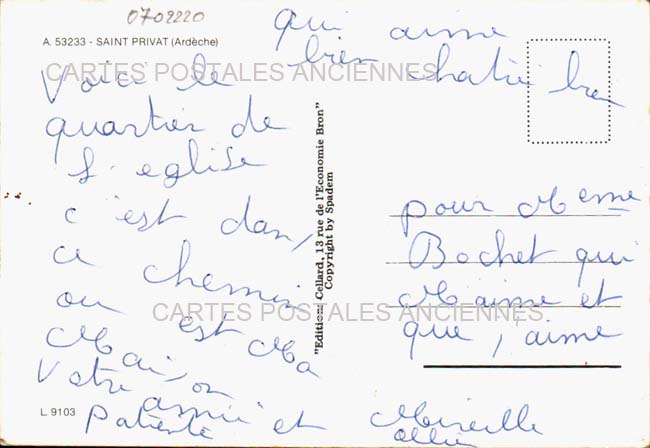 0702220
A. 53233 - SAINT PRIVAT (Ardèche)
CARTES POSTALES ANCIENNES
qui aime
bien chatie bien
Voici le
quartier de
l'eglise
c'est dans
ce chemin
ou est Ma
Maison
Votre amie et
Patiente
Mireille
"Editions Cellard, 13 rue de l'Economie Bron"
Copyright by Spadem
pour Meme
Bochet qui
M'aime et
que j'aime
CARTES POSTALES ANCIENNES
L 9103